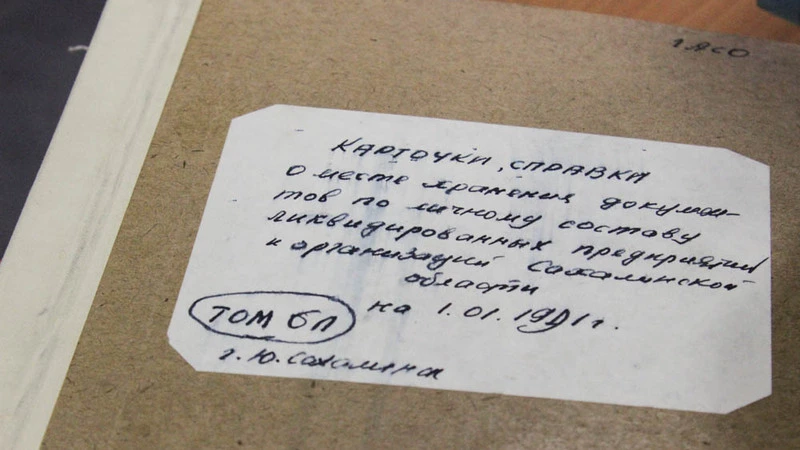 ГАСО
КАРТОЧКИ, СПРАВКИ
О месте хранения докумен-
тов по личному составу
ликвидированных предприятий
и организаций Сахалинской
области
на 1.01.1991г.
ТОМ 6Л
г. Ю. Сахалинск